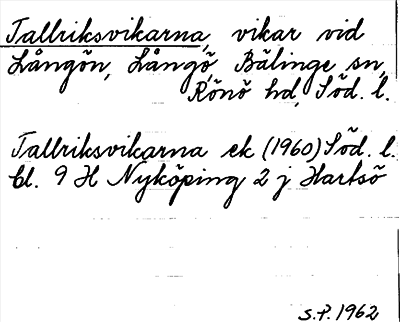 Tallriksvikarna, vikar vid
Långön, Långö Bälinge sn,
Rönö hd, Söd. l.
Tallriksvikarna ek (1960) Söd. l.
bl. 9 H Nyköping 2 j Hartsö
S.P. 1962